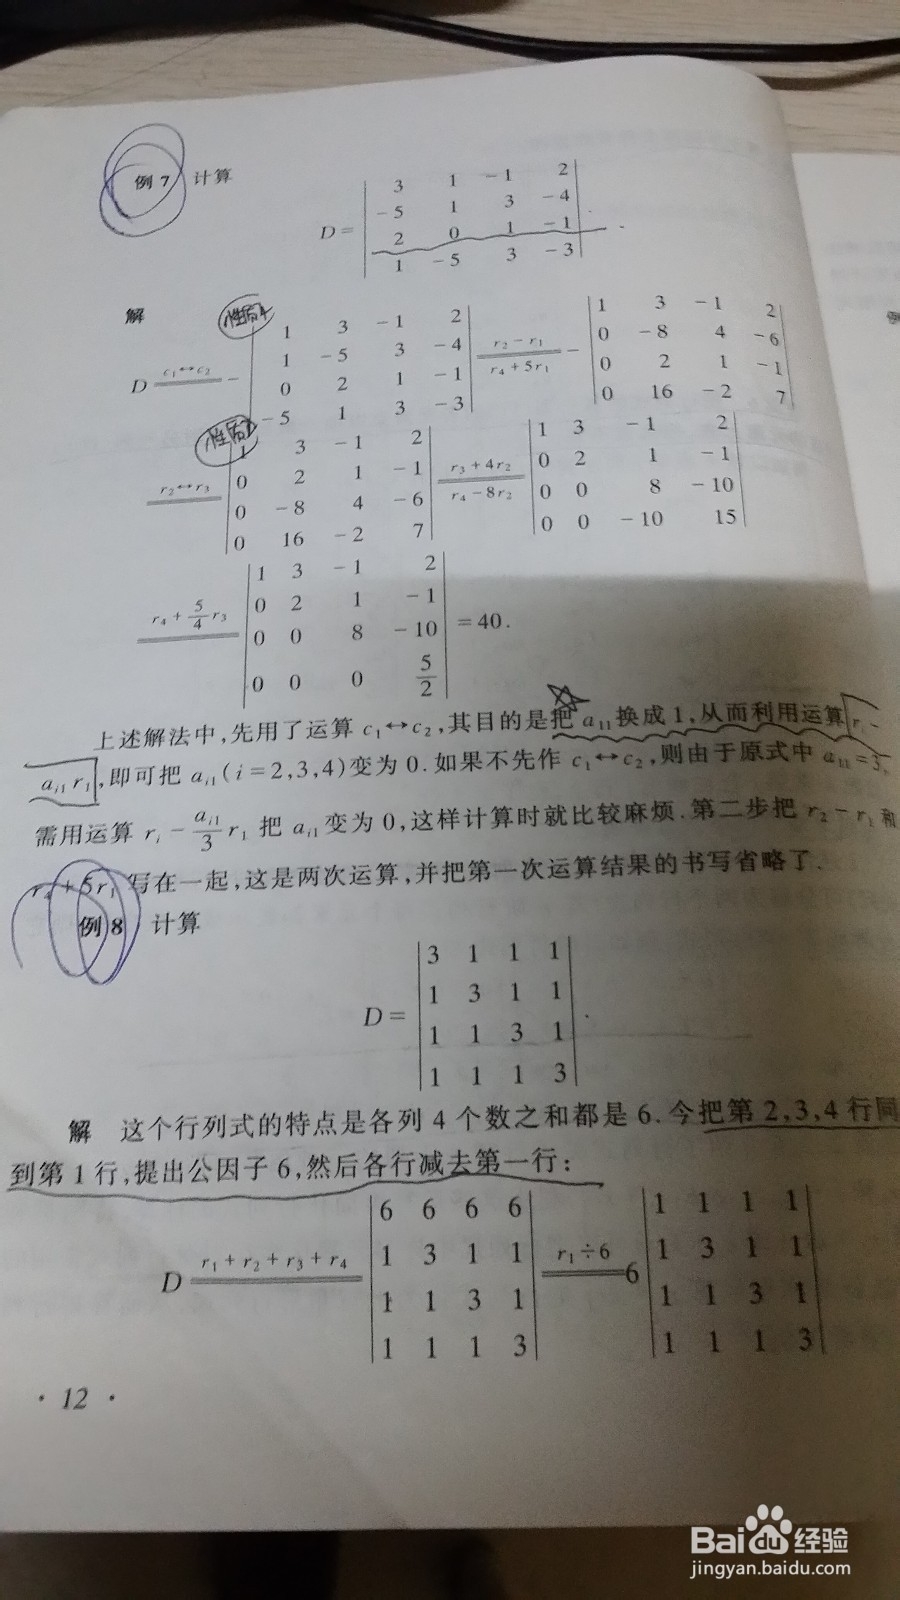 例 7 计算
3 1 -1 2
-5 1 3 -4
D= 2 0 1 -1 .
1 -5 3 -3
解 性质
1 3 -1 2
1 -5 3 -4
D c₁↔c₂ - 0 2 1 -1
-5 1 3 -3
r₂-r₁
r₄+5r₁
- 1 3 -1 2
0 -8 4 -6
0 2 1 -1
0 16 -2 7
性质
r₂↔r₃
1 3 -1 2
0 2 1 -1
0 -8 4 -6
0 16 -2 7
r₃+4r₂
r₄-8r₂
1 3 -1 2
0 2 1 -1
0 0 8 -10
0 0 -10 15
r₄+5/4r₃
1 3 -1 2
0 2 1 -1
0 0 8 -10 =40.
0 0 0 5/2
上述解法中,先用了运算 c₁↔c₂,其目的是把 a₁₁换成1,从而利用运算 rᵢ-
aᵢ₁r₁,即可把 aᵢ₁(i=2,3,4)变为0.如果不先作 c₁↔c₂,则由于原式中 a₁₁=3,
需用运算 rᵢ-aᵢ₁/3 r₁ 把 aᵢ₁变为0,这样计算时就比较麻烦.第二步把 r₂-r₁和
r₄+5r₁写在一起,这是两次运算,并把第一次运算结果的书写省略了.
例 8 计算
3 1 1 1
1 3 1 1
D= 1 1 3 1 .
1 1 1 3
解 这个行列式的特点是各列4个数之和都是6.今把第2,3,4行同
到第1行,提出公因子6,然后各行减去第一行:
6 6 6 6
1 3 1 1
D r₁+r₂+r₃+r₄ 1 1 3 1
1 1 1 3
r₁÷6
6 1 1 1 1
1 3 1 1
1 1 3 1
1 1 1 3
· 12 ·
Baidu经验
jingyan.baidu.com